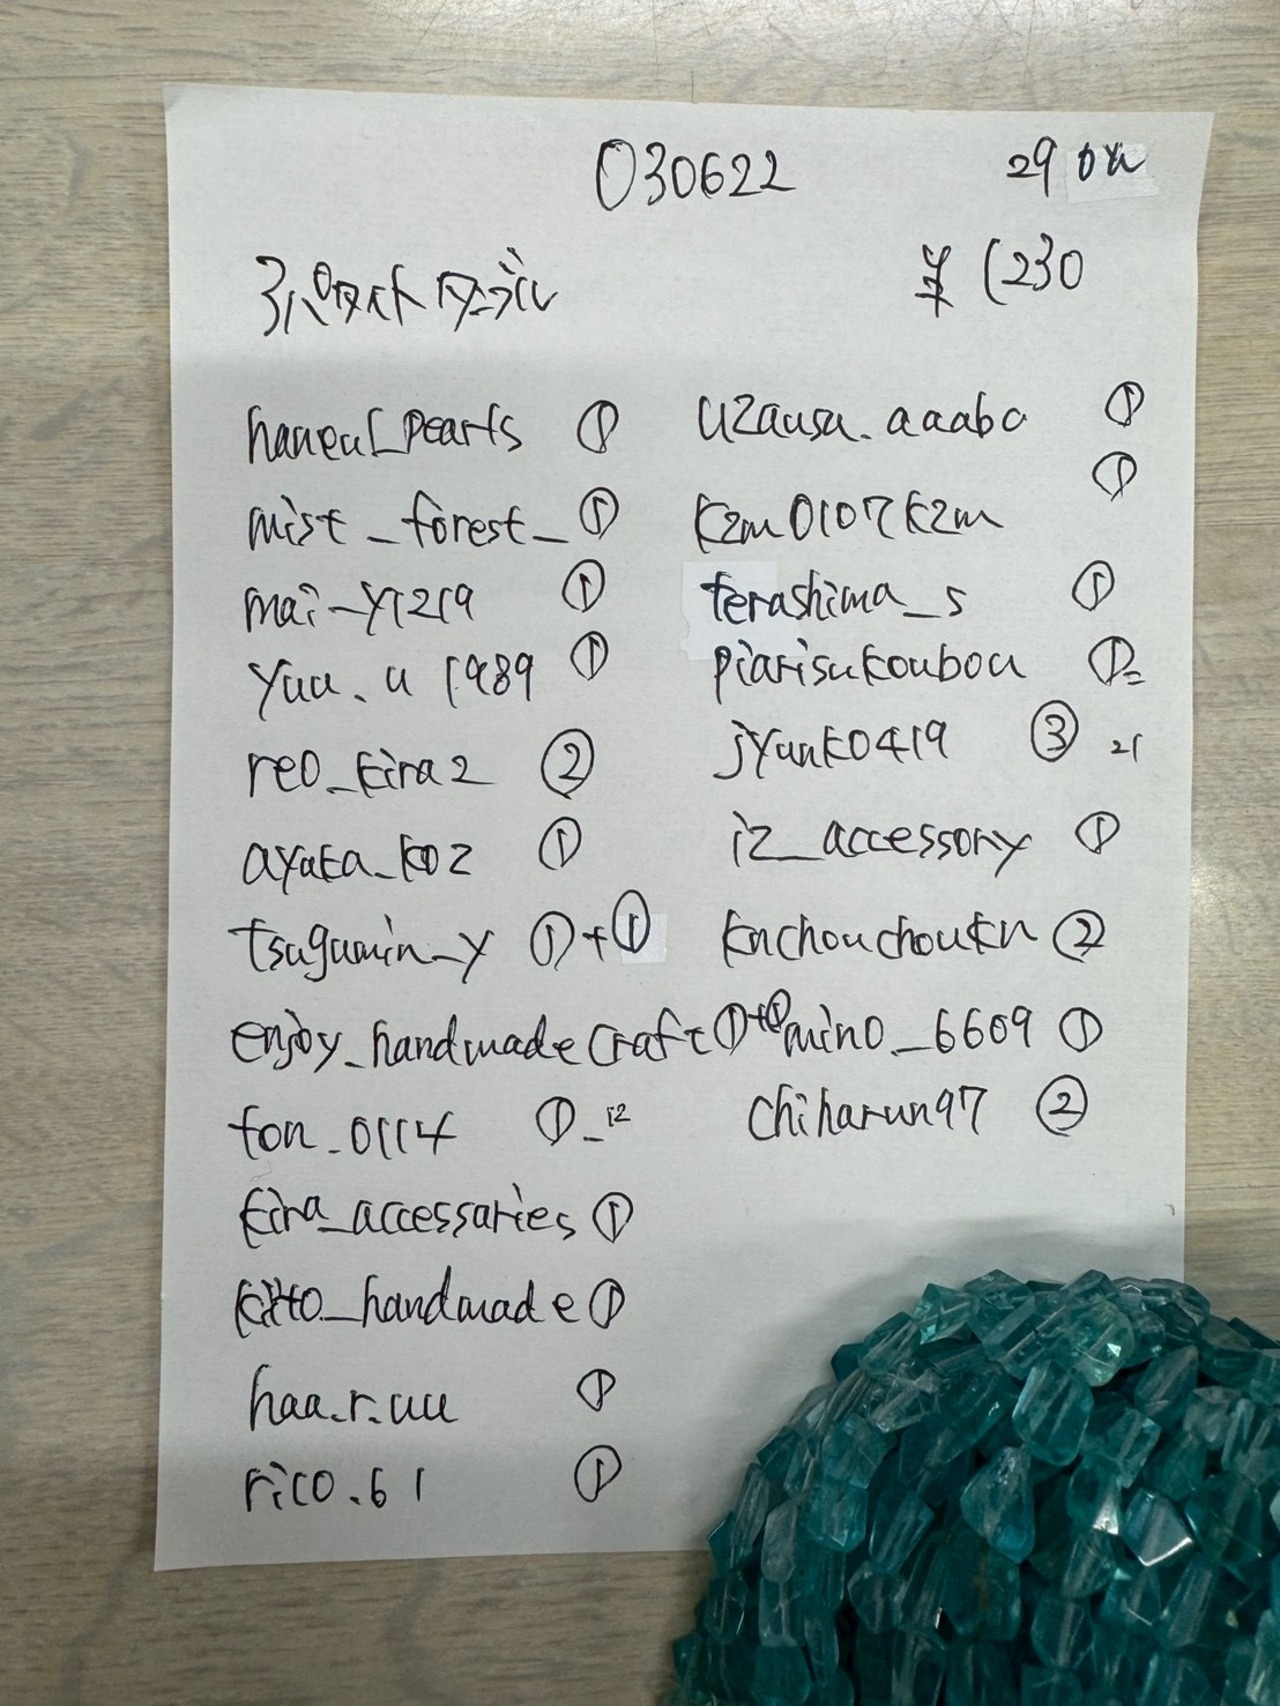 030622
29
¥1230
haneul_pearls ①
mist_forest_ ①
mai_y1219 ①
yuu.u1989 ①
reo_kira2 ②
ayaka_koz ①
tsugumin_y ①+①
enjoy_handmadecraft ①+①
ton_0114 ①-12
kira_accessaries ①
kito_handmade ①
haa.r.uu ①
rico.61 ①
uzausa.aaabo ①
kzm0107kzm ①
terashima_s ①
piarisukoubou ①=
jyunko419 ③ 21
iz_accessory ①
knchouchoukn ②
mino_6609 ①
chiharun97 ②